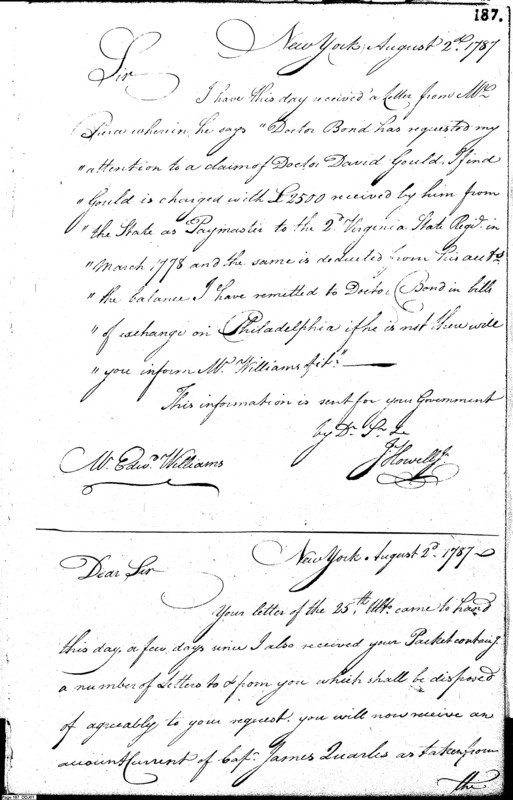 187.
New York August 2d. 1787
Sir
I have this day received a Letter from Mr.
Pierce wherein he says "Doctor Bond has requested my
"attention to a claim of Doctor David Gould, I find
"Gould is charged with £2500 received by him from
"the State as Paymaster to the 2d. Virginia State Regt. in
"March 1778 and the same is deducted from his accots
"the balance I have remitted to Doctor Bond in bills
"of exchange on Philadelphia if he is not there will
"you inform Mr. Williams of it."
This information is sent for your Government
by Dr. Sr. &c
Mr. Edwd. Williams
J. Howell Jr.
New York August 2d. 1787
Dear Sir
Your letter of the 25th. Ulto. came to hand
this day, a few days since I also received your Packet containg.
a number of Letters to & from you which shall be disposed
of agreeably to your request. you will now receive an
account Current of Capt. James Quarles as taken from
the